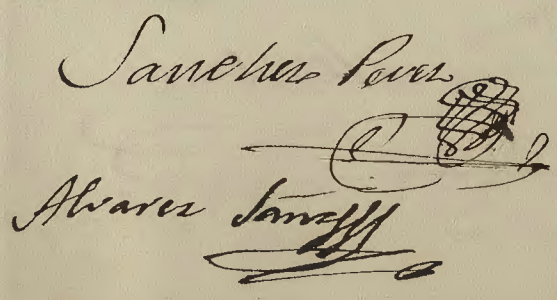 Sanchez Perez
Alvarez Sanz